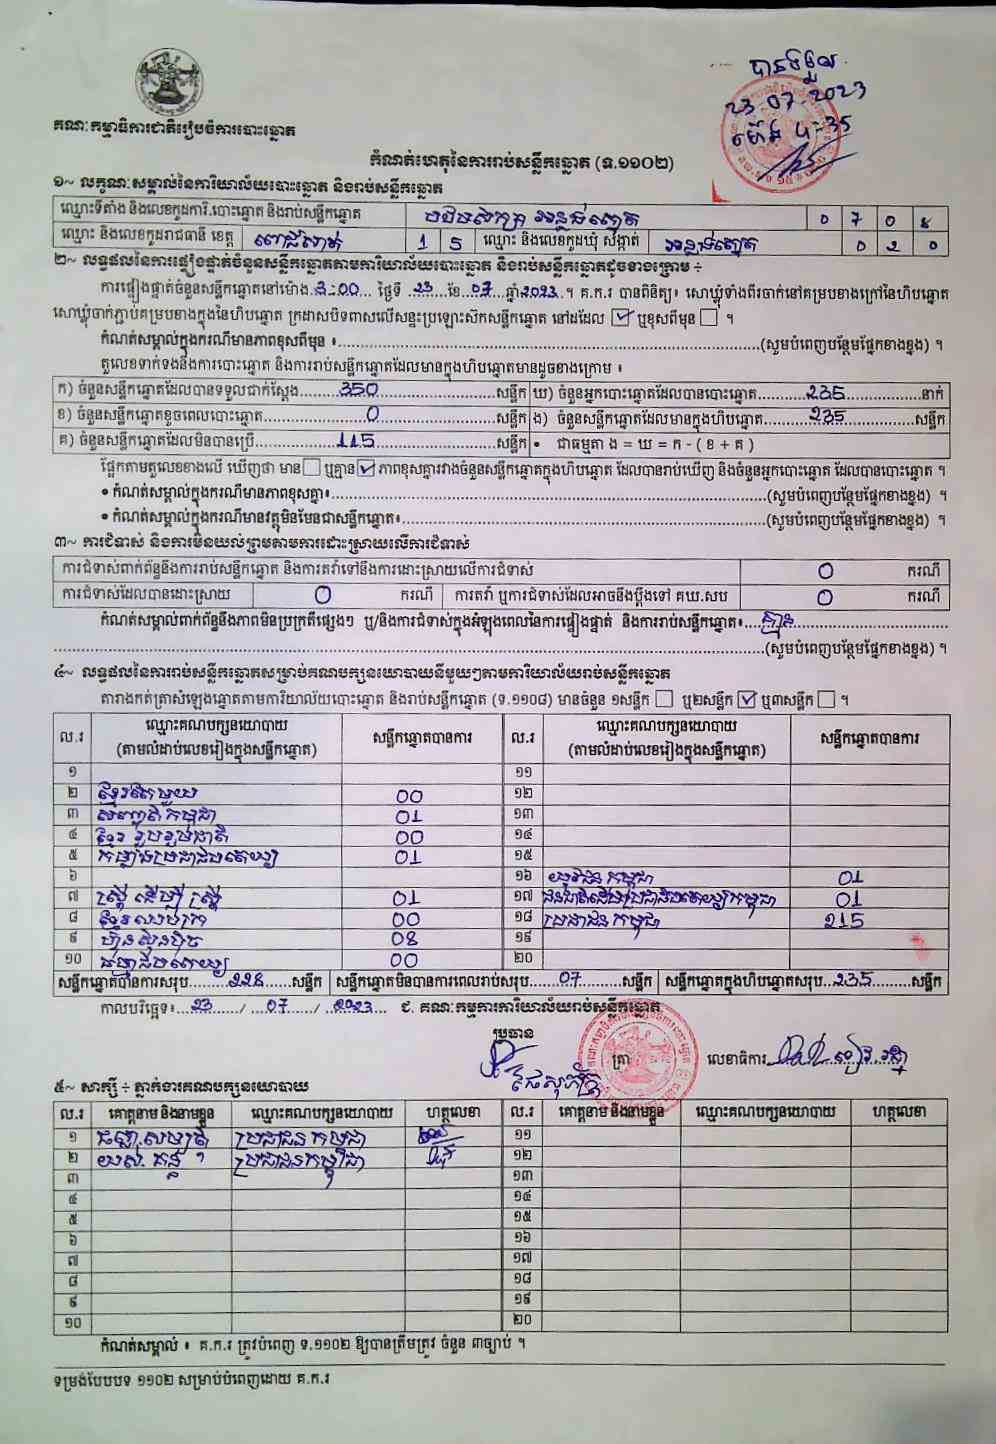 បានទទួល
23.07.2023
ម៉ោង 4:35
គណៈកម្មាធិការជាតិរៀបចំការបោះឆ្នោត
កំណត់ហេតុនៃការរាប់សន្លឹកឆ្នោត (ទ.១១០២)
១~ លក្ខណៈសម្គាល់នៃការិយាល័យបោះឆ្នោត និងរាប់សន្លឹកឆ្នោត
ឈ្មោះទីតាំង និងលេខកូដការិ.បោះឆ្នោត និងរាប់សន្លឹកឆ្នោត 0 7 0 8
ឈ្មោះ និងលេខកូដរាជធានី ខេត្ត ពោធិ៍សាត់ 1 5 ឈ្មោះ និងលេខកូដឃុំ សង្កាត់ អន្លង់ត្នោត 0 2 0
២~ លទ្ធផលនៃការផ្ទៀងផ្ទាត់ចំនួនសន្លឹកឆ្នោតតាមការិយាល័យបោះឆ្នោត និងរាប់សន្លឹកឆ្នោតដូចខាងក្រោម ÷
ការផ្ទៀងផ្ទាត់ចំនួនសន្លឹកឆ្នោតនៅម៉ោង 3:00 ថ្ងៃទី 23 ខែ 07 ឆ្នាំ 2023 ។ គ.ក.រ បានពិនិត្យ៖ សោឃ្លុំទាំងពីរចាក់នៅគម្របខាងក្រៅនៃហិបឆ្នោត
សោឃ្លុំចាក់ភ្ជាប់គម្របខាងក្នុងនៃហិបឆ្នោត ក្រដាសបិទពាសលើសន្ទះប្រឡោះស៊កសន្លឹកឆ្នោត នៅដដែល ☑ ឬខុសពីមុន ☐ ។
កំណត់សម្គាល់ក្នុងករណីមានភាពខុសពីមុន ៖ (សូមបំពេញបន្ថែមផ្នែកខាងខ្នង) ។
តួលេខទាក់ទងនឹងការបោះឆ្នោត និងការរាប់សន្លឹកឆ្នោតដែលមានក្នុងហិបឆ្នោតមានដូចខាងក្រោម ៖
ក) ចំនួនសន្លឹកឆ្នោតដែលបានទទួលជាក់ស្តែង 350 សន្លឹក ឃ) ចំនួនអ្នកបោះឆ្នោតដែលបានបោះឆ្នោត 235 នាក់
ខ) ចំនួនសន្លឹកឆ្នោតខូចពេលបោះឆ្នោត 0 សន្លឹក ង) ចំនួនសន្លឹកឆ្នោតដែលមានក្នុងហិបឆ្នោត 235 សន្លឹក
គ) ចំនួនសន្លឹកឆ្នោតដែលមិនបានប្រើ 115 សន្លឹក • ជាធម្មតា ង = ឃ = ក - ( ខ + គ )
ផ្អែកតាមតួលេខខាងលើ ឃើញថា មាន ☐ ឬគ្មាន ☑ ភាពខុសគ្នារវាងចំនួនសន្លឹកឆ្នោតក្នុងហិបឆ្នោត ដែលបានរាប់ឃើញ និងចំនួនអ្នកបោះឆ្នោត ដែលបានបោះឆ្នោត ។
• កំណត់សម្គាល់ក្នុងករណីមានភាពខុសគ្នា៖ (សូមបំពេញបន្ថែមផ្នែកខាងខ្នង) ។
• កំណត់សម្គាល់ក្នុងករណីមានវត្ថុមិនមែនជាសន្លឹកឆ្នោត៖ (សូមបំពេញបន្ថែមផ្នែកខាងខ្នង) ។
៣~ ការជំទាស់ និងការមិនយល់ព្រមតាមការដោះស្រាយលើការជំទាស់
ការជំទាស់ពាក់ព័ន្ធនឹងការរាប់សន្លឹកឆ្នោត និងការតវ៉ាទៅនឹងការដោះស្រាយលើការជំទាស់ 0 ករណី
ការជំទាស់ដែលបានដោះស្រាយ 0 ករណី ការតវ៉ា ឬការជំទាស់ដែលអាចនឹងប្តឹងទៅ គឃ.សប 0 ករណី
កំណត់សម្គាល់ពាក់ព័ន្ធនឹងភាពមិនប្រក្រតីផ្សេងៗ ឬ/និងការជំទាស់ក្នុងអំឡុងពេលនៃការផ្ទៀងផ្ទាត់ និងការរាប់សន្លឹកឆ្នោត៖ គ្មាន
(សូមបំពេញបន្ថែមផ្នែកខាងខ្នង) ។
៤~ លទ្ធផលនៃការរាប់សន្លឹកឆ្នោតសម្រាប់គណបក្សនយោបាយនីមួយៗតាមការិយាល័យរាប់សន្លឹកឆ្នោត
តារាងកត់ត្រាសំឡេងឆ្នោតតាមការិយាល័យបោះឆ្នោត និងរាប់សន្លឹកឆ្នោត (ទ.១១០៨) មានចំនួន ១សន្លឹក ☐ ឬ២សន្លឹក ☑ ឬ៣សន្លឹក ☐ ។
ល.រ ឈ្មោះគណបក្សនយោបាយ (តាមលំដាប់លេខរៀងក្នុងសន្លឹកឆ្នោត) សន្លឹកឆ្នោតបានការ ល.រ ឈ្មោះគណបក្សនយោបាយ (តាមលំដាប់លេខរៀងក្នុងសន្លឹកឆ្នោត) សន្លឹកឆ្នោតបានការ
១ ១១
២ ខ្មែរតែមួយ 00 ១២
៣ សញ្ជាតិកម្ពុជា 01 ១៣
៤ ខ្មែររួបរួមជាតិ 00 ១៤
៥ កម្លាំងប្រជាធិបតេយ្យ 01 ១៥
៦ ១៦ យុវជនកម្ពុជា 01
៧ ស្ត្រីដើម្បីស្ត្រី 01 ១៧ ជនជាតិដើមប្រជាធិបតេយ្យកម្ពុជា 01
៨ 00 ១៨ ប្រជាជនកម្ពុជា 215
៩ ហ៊្វុនស៊ិនប៉ិច 08 ១៩
១០ ធម្មាធិបតេយ្យ 00 ២០
សន្លឹកឆ្នោតបានការសរុប 228 សន្លឹក សន្លឹកឆ្នោតមិនបានការពេលរាប់សរុប 07 សន្លឹក សន្លឹកឆ្នោតក្នុងហិបឆ្នោតសរុប 235 សន្លឹក
កាលបរិច្ឆេទ៖ 23 / 07 / 2023 ជ. គណៈកម្មការការិយាល័យរាប់សន្លឹកឆ្នោត
ប្រធាន ត្រា លេខាធិការ
៥~ សាក្សី ÷ ភ្នាក់ងារគណបក្សនយោបាយ
ល.រ គោត្តនាម និងនាមខ្លួន ឈ្មោះគណបក្សនយោបាយ ហត្ថលេខា ល.រ គោត្តនាម និងនាមខ្លួន ឈ្មោះគណបក្សនយោបាយ ហត្ថលេខា
១ ប្រជាជនកម្ពុជា ១១
២ ប្រជាជនកម្ពុជា ១២
៣ ១៣
៤ ១៤
៥ ១៥
៦ ១៦
៧ ១៧
៨ ១៨
៩ ១៩
១០ ២០
កំណត់សម្គាល់ ៖ គ.ក.រ ត្រូវបំពេញ ទ.១១០២ ឱ្យបានត្រឹមត្រូវ ចំនួន ៣ច្បាប់ ។
ទម្រង់បែបបទ ១១០២ សម្រាប់បំពេញដោយ គ.ក.រ